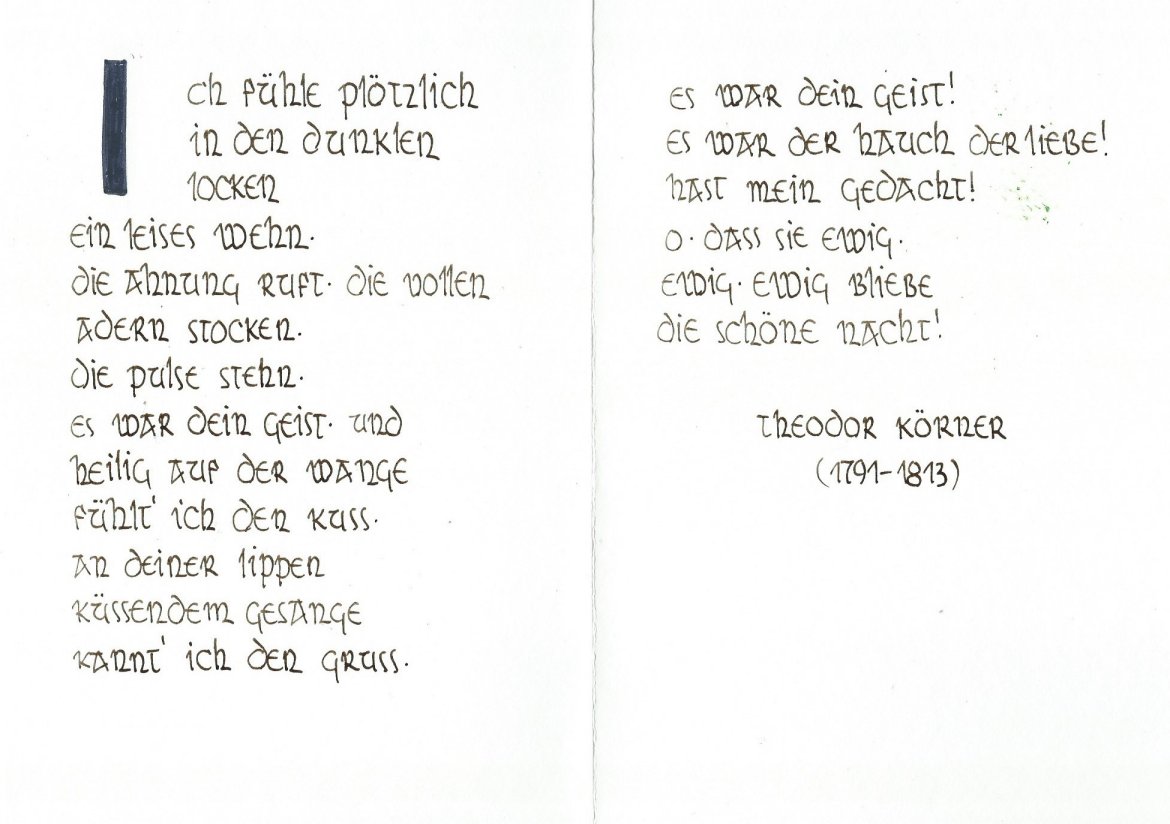 Ich fühle plötzlich
in den dunklen
locken
ein leises wehn.
die ahnung ruft. die vollen
adern stocken.
die pulse stehn.
es war dein geist. und
heilig auf der wange
fühlt' ich den kuss.
an deiner lippen
küssendem gesange
kannt' ich den gruss.
es war dein geist!
es war der hauch der liebe!
hast mein gedacht!
o. dass sie ewig.
ewig. ewig bliebe
die schöne nacht!
theodor körner
(1791-1813)